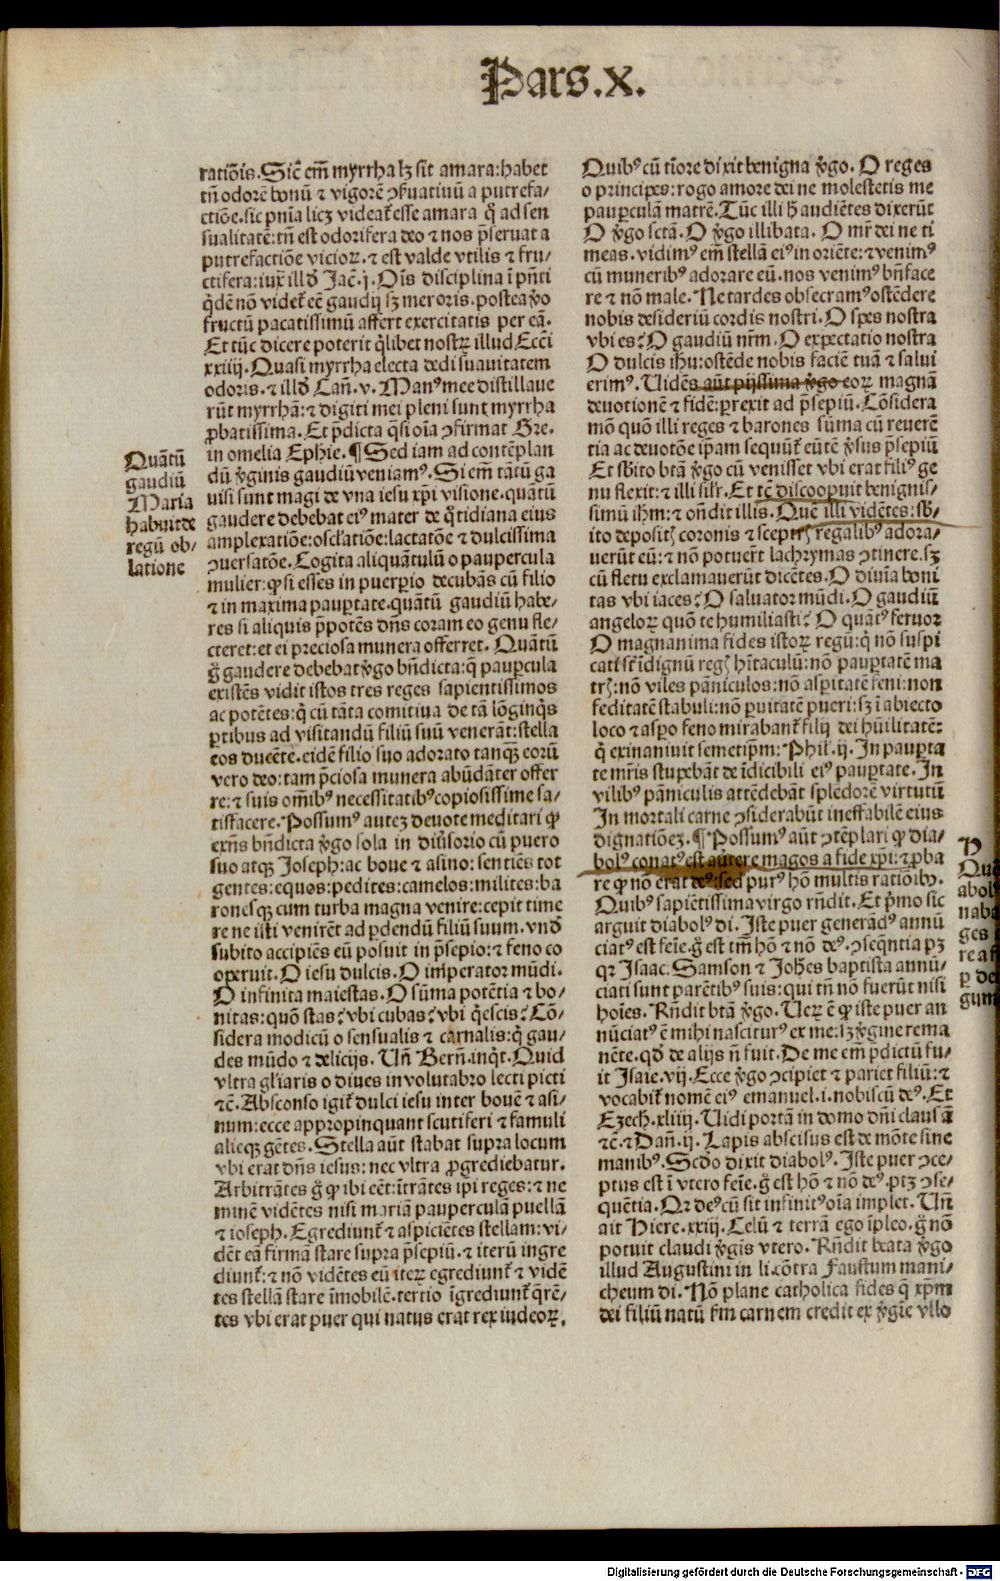 Pars.x.
ratiōis. Sic̄ em̄ myrrha lꝫ sit amara: habet
tn̄ odorē bonū ⁊ vigorē ꝯẜuatiuū a putrefa/
ctiōe. sic pn̄ia licꝫ videat̄ esse amara q̄ ad sen
sualitatē: tn̄ est odorifera deo ⁊ nos p̄seruat a
putrefactiōe vicioꝝ. ⁊ est valde vtilis ⁊ fru/
ctifera: iux̄ illđ Jac̄. j. Oīs disciplina ī pn̄ti
q̄dē nō videt̄ eē gaudij sꝫ meroris. postea ꝟo
fructū pacatissimū affert exercitatis per eā.
Et tūc dicere poterit q̄libet nostꝝ illud Ecc̄i
xxiiij. Quasi myrrha electa dedi suauitatem
odoris. ⁊ illđ Can̄. v. Man⁹ mee distillaue
rūt myrrhā: ⁊ digiti mei pleni sunt myrrha
ꝓbatissima. Et p̄dicta q̄si oīa ꝯfirmat Gre.
in omelia Ephie. ¶ Sed iam ad contēplan
dū ꝟginis gaudiū veniam⁹. Si em̄ tātū ga
uisi sunt magi de vna iesu xp̄i visione. quātū
gaudere debebat ei⁹ mater de q̄tidiana eius
amplexatiōe: oscl̄atiōe: lactatōe ⁊ dulcissima
ꝯuersatōe. Cogita aliquātulū o paupercula
mulier: ꝙ si esses in puerpio decubās cū filio
⁊ in maxima paup̄tate. quātū gaudiū habe/
res si aliquis p̄potēs dn̄s coram eo genu fle/
cteret: et ei preciosa munera offerret. Quātū
g̊ gaudere debebat ꝟgo bn̄dicta: q̄ paup̄cula
existēs vidit istos tres reges sapientissimos
ac potētes: q̄ cū tāta comitiua de tā lōginq̄s
ꝑtibus ad visitandū filiū suū venerāt: stella
eos ducēte. eidē filio suo adorato tanqꝫ eorū
vero deo: tam p̄ciosa munera abūdāter offer
re: ⁊ suis om̄ib⁹ necessitatib⁹ copiosissime sa/
tisfacere. Possum⁹ autez deuote meditari ꝙ
exn̄s bn̄dicta ꝟgo sola in diūsorio cū puero
suo atqꝫ Joseph: ac boue ⁊ asino: sentiēs tot
gentes: equos: pedites: camelos: milites: ba
ronesqꝫ cum turba magna venire: cepit time
re ne isti venirēt ad ꝑdendū filiū suum. vnđ
subito accipiēs eū posuit in p̄sepio: ⁊ feno co
operuit. O iesu dulcis. O imperator mūdi.
O infinita maiestas. O sūma potētia ⁊ bo/
nitas: quō stas? vbi cubas? vbi q̄escis? Cō/
sidera modicū o sensualis ⁊ carnalis: q̄ gau/
des mūdo ⁊ delicijs. Vn̄ Bern̄. inq̄t. Quid
vltra gl̄iaris o diues in volutabro lecti picti
⁊c̄. Absconso igit̄ dulci iesu inter bouē ⁊ asi/
num: ecce appropinquant scutiferi ⁊ famuli
alieqꝫ gētes. Stella aūt stabat supra locum
vbi erat dn̄s iesus: nec vltra ꝓgrediebatur.
Arbitrātes g̊ ꝙ ibi eēt: ītrātes ip̄i reges: ⁊ ne
minē vidētes nisi mariā pauperculā puellā
⁊ ioseph. Egrediunt̄ ⁊ aspiciētes stellam: vi/
dēt eā firmā stare supra p̄sepiū. ⁊ iterū ingre
diunt̄: ⁊ nō vidētes eū iteꝝ egrediunt̄ ⁊ vidē
tes stellā stare īmobilē. tertio īgrediunt̄ q̄rē/
tes vbi erat puer qui natus erat rex iudeoꝝ.
Quātū
gaudiū
Maria
habuit de
regū ob/
latione
Quib⁹ cū tīore dixit benigna ꝟgo. O reges
o principes: rogo amore dei ne molestetis me
paup̄culā matrē. Tūc illi h̄ audiētes dixerūt
O ꝟgo sctā. O ꝟgo illibata. O mr̄ dei ne ti
meas. vidim⁹ em̄ stellā ei⁹ in oriēte: ⁊ venim⁹
cū munerib⁹ adorare eū. nos venim⁹ bn̄face
re ⁊ nō male. Ne tardes obsecram⁹ ostēdere
nobis desideriū cordis nostri. O spes nostra
vbi es? O gaudiū nr̄m. O expectatio nostra
O dulcis ih̄u: ostēde nobis faciē tuā ⁊ salui
erim⁹. Uidēs aūt pijssima ꝟgo eoꝝ magnā
deuotionē ⁊ fidē: ꝑrexit ad p̄sepiū. Cōsidera
mō quō illi reges ⁊ barones sūma cū reuerē
tia ac deuotōe ip̄am sequunt̄ eūtē ꝟsus p̄sepiū
Et sb̄ito btā ꝟgo cū venisset vbi erat fili⁹ ge
nu flexit: ⁊ illi sil̄r. Et tc̄ discoopuit benignis/
simū ih̄m: ⁊ on̄dit illis. Quē illi vidētes: sb̄/
ito deposit̄ꝭ coronis ⁊ sceptrꝭ regalib⁹ adora/
uerūt eū: ⁊ nō potuert̄ lachrymas ꝯtinere. sꝫ
cū fletu exclamauerūt dicētes. O diuīa boni
tas vbi iaces? O saluator mūdi. O gaudiū
angeloꝝ quō te humiliasti? O quāt⁹ feruor
O magnanima fides istoꝝ regū: q̄ nō suspi
cati sūt īdignū regꝭ hītaculū: nō paup̄tatē ma
trꝭ: nō viles pāniculos: nō asp̄itatē feni: non
feditatē stabuli: nō ꝑuitatē pueri: sꝫ ī abiecto
loco ⁊ aspo feno mirabant̄ filij dei hūilitatē:
q̄ exinaniuit semetip̄m: Phil̄. ij. In paup̄ta
te mr̄is stupebāt de īdicibili ei⁹ paup̄tate. In
vilib⁹ pāniculis attēdebāt splēdorē virtutū
In mortali carne ꝯsiderabūt ineffabilē eius
dignatiōez. ¶ Possum⁹ aūt ꝯtēplari ꝙ dia/
bol⁹ conat⁹ est auferre magos a fide xp̄i: ⁊ ꝓba
re ꝙ nō erat de⁹: sed pur⁹ hō multis ratiōibꝰ.
Quib⁹ sapiētissima virgo rn̄dit. Et p̄mo sic
arguit diabol⁹ di. Iste puer generād⁹ annū
ciat⁹ est feīe. g̊ est tm̄ hō ⁊ nō de⁹. ꝯseq̄ntia pꝫ
qꝛ Isaac: Samson ⁊ Joh̄es baptista annū/
ciati sunt parētib⁹ suis: qui tn̄ nō fuerūt nisi
hoīes. Rn̄dit btā ꝟgo. Ueꝝ ē ꝙ iste puer an
nūciat⁹ ē mihi nascitur⁹ ex me: lꝫ ꝟgine rema
nēte. qđ de alijs n̄ fuit. De me em̄ p̄dictū fu/
it Isaie. vij. Ecce ꝟgo ꝯcipiet ⁊ pariet filiū: ⁊
vocabit̄ nomē ei⁹ emanuel. i. nobiscū de⁹. Et
Ezech̄. xliiij. Uidi portā in domo dn̄i clausā
⁊c̄. ⁊ Dan̄. ij. Lapis abscisus est de mōte sine
manib⁹. Scđo dixit diabol⁹. Iste puer ꝯce/
ptus est ī vtero feīe. g̊ est hō ⁊ nō de⁹. ptꝫ ꝯse/
quētia. Qꝛ de⁹ cū sit infinit⁹ oīa implet. Un̄
ait Hiere. xxiij. Celū ⁊ terrā ego īpleo. g̊ nō
potuit claudi ꝟgīs vtero. Rn̄dit beata ꝟgo
illud Augustini in li. cōtra Faustum mani/
cheum di. Nō plane catholica fides q̄ xp̄m
dei filiū natū ẜm carnem credit ex ꝟgīe vllo
abol
nab
ges
re a f
gum
Digitalisierung gefördert durch die Deutsche Forschungsgemeinschaft - DFG